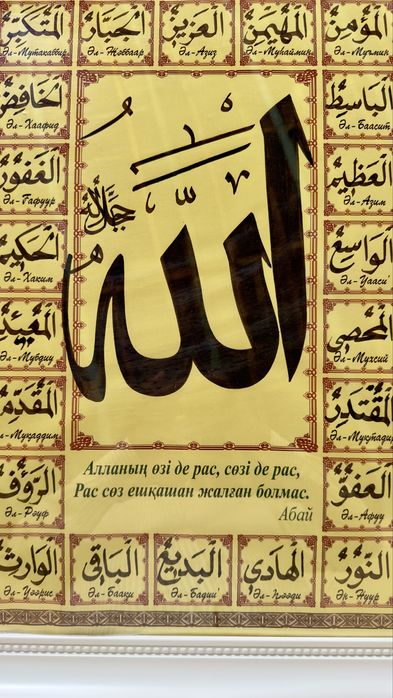 المتكبر
الجبار
العزيز
المهيمن
المؤمن
Әл-Мутакаббир
Әл-Жәббаар
Әл-Азиз
Әл-Муһаймин
Әл-Мүъмин
الخافض
Әл-Хаафид
الباسط
Әл-Баасит
الغفور
Әл-Ғафуур
العظيم
Әл-Азим
الحكيم
Әл-Хаким
الواسع
Әл-Уааси'
المبدئ
Әл-Мубдиу
المحصي
Әл-Мухсий
المقدم
Әл-Муқаддим
المقتدر
Әл-Муқтадир
الرؤوف
Әл-Рәуф
العفو
Әл-Афуу
الله
جل جلاله
Алланың өзі де рас, сөзі де рас,
Рас сөз ешқашан жалған болмас.
Абай
الوارث
الباقي
البديع
الهادي
النور
Әл-Уәәрис
Әл-Баақи
Әл-Бадии'
Әл-Һәәди
Ән-Нуур